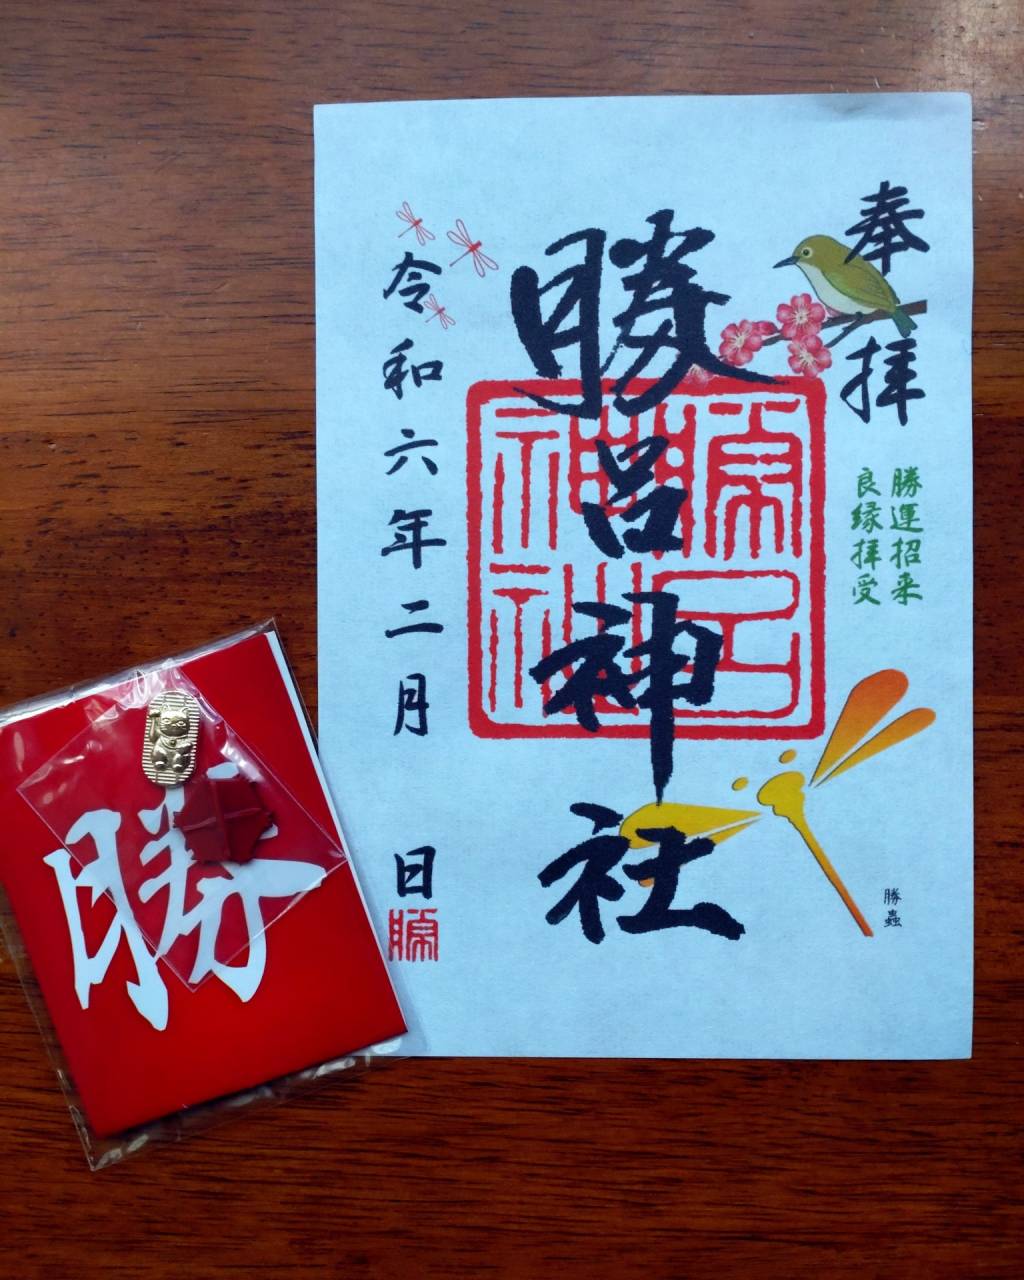 奉拝
勝運招来
良縁拝受
勝呂神社
勝蟲
令和六年二月　日
勝